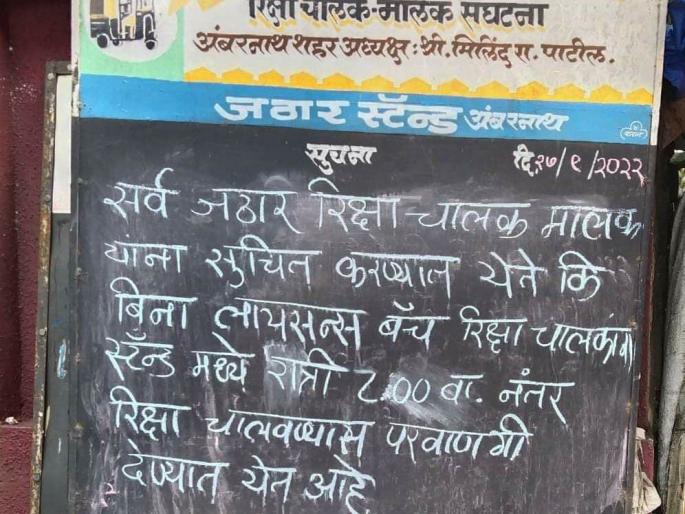 रिक्षा चालक-मालक संघटना
अंबरनाथ शहर अध्यक्ष : श्री. मिलिंद रा. पाटील.
जठार स्टॅन्ड अंबरनाथ
सुचना दि.२७/९/२०२२
सर्व जठार रिक्षा चालक मालक
यांना सुचित करण्यात येते कि
बिना लायसन्स बॅच रिक्षा चालकांना
स्टॅन्ड मध्ये रात्री ८:०० वा. नंतर
रिक्षा चालवण्यास परवाणगी
देण्यात येत आहे